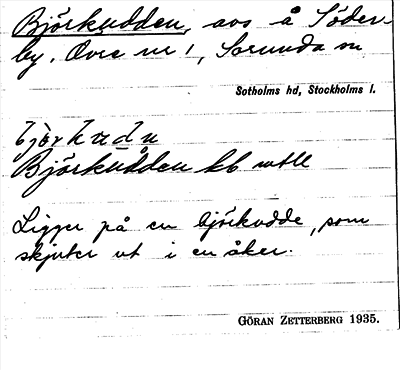 Björkudden, avs å Söder-
by, Övre nr 1, Sorunda sn
Sotholms hd, Stockholms l.
Björkudden kb. uttl
Ligger på en björkudde, som
skjuter ut i en åker.
GÖRAN ZETTERBERG 1935.